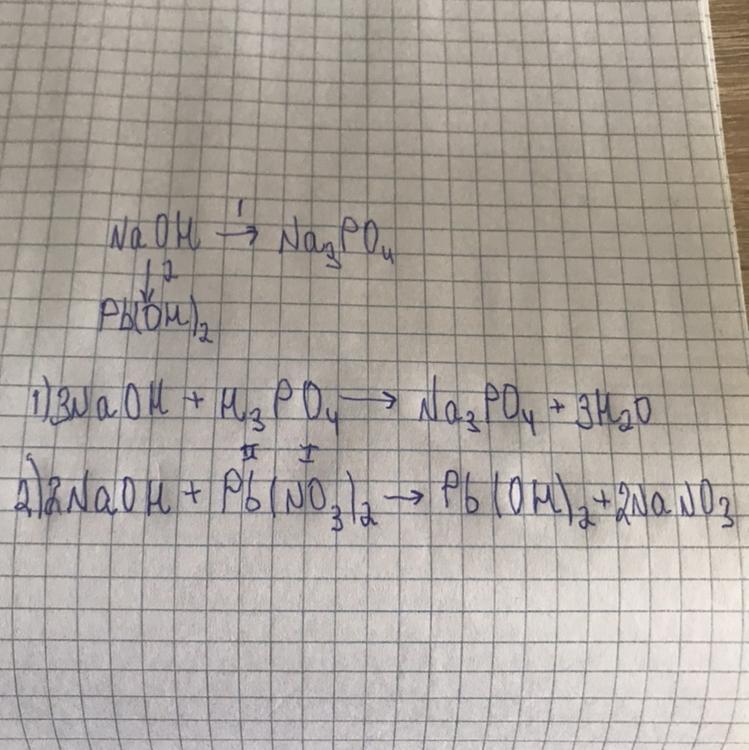 NaOH 1→ Na₃PO₄
↓ 2
Pb(OH)₂
1) 3NaOH + H₃PO₄ → Na₃PO₄ + 3H₂O
II I
2) 2NaOH + Pb(NO₃)₂ → Pb(OH)₂ + 2NaNO₃